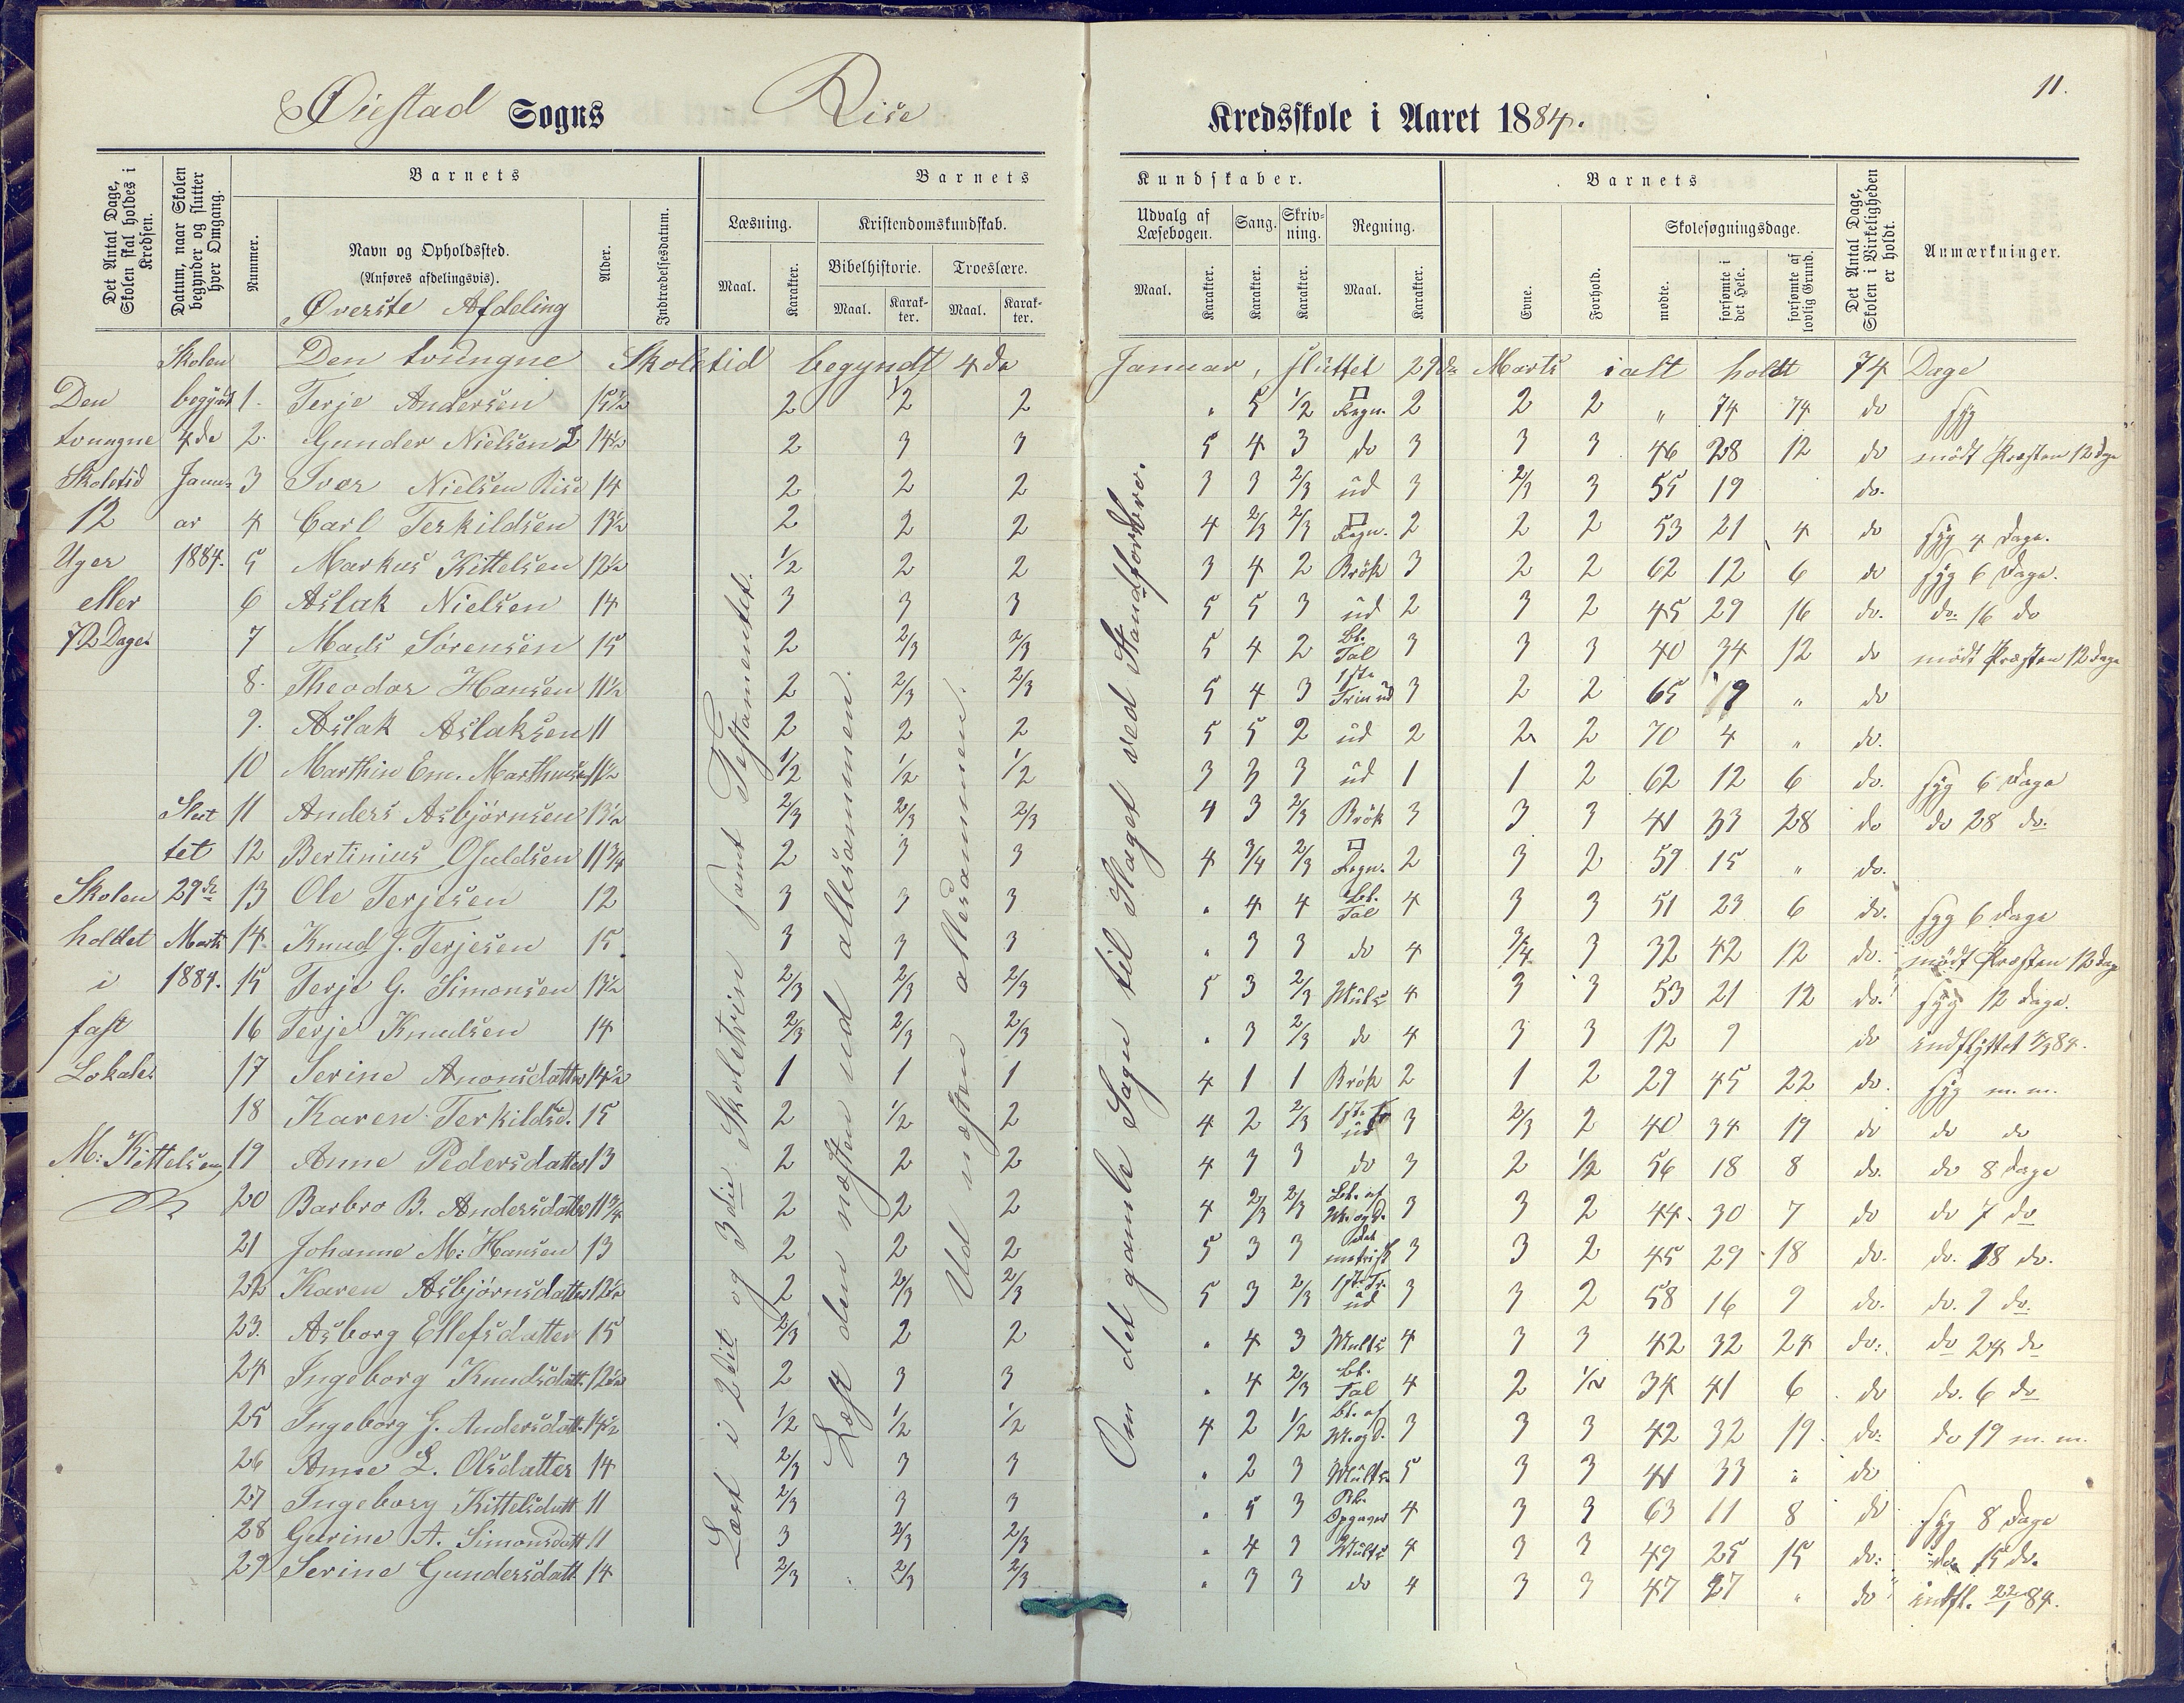 11.
Øiestad Sogns Rise Kredsskole i Aaret 1884.
Det Antal Dage, Skolen skal holdes i Kredsen.
Datum, naar Skolen begynder og slutter hver Omgang.
Barnets
Nummer.
Navn og Opholdssted.
(Anføres afdelingsvis).
Øverste Afdeling
Alder.
Indtrædelsesdatum.
Barnets Kundskaber.
Læsning.
Maal. Karakter.
Kristendomskundskab.
Bibelhistorie. Troeslære.
Maal. Karakter. Maal. Karakter.
Udvalg af Læsebogen. Sang. Skrivning. Regning.
Maal. Karakter. Karakter. Karakter. Maal. Karakter.
Barnets
Evne. Forhold.
Skolesøgningsdage.
mødte. forsømte i det Hele. forsømte af lovlig Grund.
Det Antal Dage, Skolen i Virkeligheden er holdt.
Anmærkninger.
Den tvungne Skoletid begyndt 4de Januar, sluttet 29de Marts ialt holdt 74 Dage
Den tvungne Skoletid 12 Uger eller 72 Dage.
Skolen begyndt 4de Januar 1884.
Sluttet 29de Marts 1884.
Skolen holdet i fast Lokale.
M: Kittelsen
Læst i 2det og 3die Skoletrin samt Testamentet.
Læst den næsten ud allesammen.
Ud næsten allesammen.
Om det gamle Sagn til Slaget ved Standfordbro.
1. Terje Andersen 15½ 2 ½ 2 2 " 5 ½ Regn. 2 2 2 " 74 74 do syg
2. Gunder Nielsen 14½ 2 3 3 5 4 3 do 3 3 3 46 28 12 do mödt Præsten 12 Dage
3 Iver Nielsen Rise 14 2 2 2 3 3 2/3 ud 3 2/3 3 55 19 do.
4 Carl Terkildsen 13½ 2 2 2 4 2/3 2/3 Regn. 2 2 2 53 21 4 do syg 4 Dage.
5 Markus Kittelsen 12½ ½ 2 2 3 4 2 Brök 3 2 2 62 12 6 do syg 6 Dage.
6 Aslak Nielsen 14 3 3 3 5 5 3 ud 2 3 2 45 29 16 do. do. 16 do
7 Mads Sørensen 15 2 2/3 2/3 5 4 2 Bl. Tal 3 3 3 40 34 12 do mödt Præsten 12 Dage
8. Theodor Hansen 11½ 2 2/3 2/3 5 4 3 1ste Trin ud 3 2 2 65 9 " do
9. Aslak Aslaksen 11 2 2 2 5 5 2 ud 2 2 2 70 4 " do.
10 Marthin Em. Marthinsen 11½ ½ ½ ½ 3 3 3 ud 1 1 2 62 12 6 do. syg 6 Dage
11 Anders Asbjørnsen 13½ 2/3 2/3 2/3 4 3 2/3 Brök 3 3 3 41 33 28 do do 28 do.
12 Bertinius Osuldsen 11¾ 2 3 3 4 3/4 2/3 Regn. 2 3 2 59 15 " do.
13 Ole Terjesen 12 3 3 3 " 4 4 Bl. Tal 4 3 3 51 23 6 do. syg 6 Dage
14. Knud J. Terjesen 15. 3 3 3 " 3 3 do 4 3/4 3 32 42 12 do. mödt Præsten 12 Dage
15 Terje G. Simonsen 13½ 2/3 2/3 2/3 5 3 2/3 Mults 4 3 3 53 21 12 do. syg 12 Dage.
16 Terje Knudsen 14 2/3 2/3 2/3 " 3 2/3 do 4 3 3 12 9 do indflyttet 84.
17 Serine Anonsdatter 14½ 1 1 1 4 1 1 Brök 2 1 2 29 45 22 do. syg m. m.
18 Karen Terkildsd. 15 2 ½ 2 4 2 2/3 1ste Tr. ud 3 2/3 2 40 34 19 do do do
19 Anne Pedersdatter 13 2 2 2 4 3 3 do 3 2 ½ 56 18 8 do. do 8 Dage
20 Barbro B. Andersdatter 11¾ 2 2 2 4 2/3 2/3 Bl. af M. og D. 3 3 2 44 30 7 do do 7 do
21 Johanne M: Hansen 13 2 2 2 5 3 3 metrisk 3 3 2 45 29 18 do. do. 18 do.
22 Karen Asbjørnsdatter 12½ 2 2/3 2/3 5 3 2/3 1ste Tr. ud 3 3 2 58 16 9 do. do. 9 do.
23. Asborg Ellefsdatter 15 2/3 2 2 " 4 3 Mults 4 3 3 42 32 24 do. do 24 do
24 Ingeborg Knudsdatt. 12½ 2 3 3 " 4 2/3 Bl. Tal 4 2 ½ 34 41 6 do do. 6 do
25 Ingeborg G. Andersdatt. 14½ ½ ½ ½ 4 2 ½ Bl. af M. og D. 3 3 3 42 32 19 do. do 19 m. m.
26 Anne L. Olsdatter 14 2/3 3 3 " 2 3 Mults. 5 3 3 41 33 " do
27 Ingeborg Kittelsdatt 11 2/3 3 3 " 5 3 Opgaver 4 3 3 63 11 8 do syg 8 Dage
28 Gurine A. Simonsdatt 11 3 2/3 2/3 " 4 3 Mults 4 3 3 49 25 15 do: do. 15 do.
29 Serine Gundersdatt 14 2/3 2/3 2/3 " 3 3 do 4 3 3 47 27 " do indfl. 22/1 84.